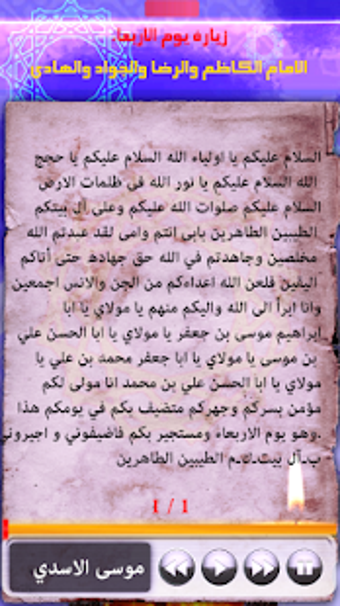 زيارة يوم الاربعاء
الامام الكاظم والرضا والجواد والهادي
السلام عليكم يا اولياء الله السلام عليكم يا حجج
الله السلام عليكم يا نور الله في ظلمات الارض
السلام عليكم صلوات الله عليكم وعلى آل بيتكم
الطيبين الطاهرين بابي انتم وامي لقد عبدتم الله
مخلصين وجاهدتم في الله حق جهاده حتى أتاكم
اليقين فلعن الله اعداءكم من الجن والانس اجمعين
وانا ابرأ الى الله واليكم منهم يا مولاي يا ابا
إبراهيم موسى بن جعفر يا مولاي يا ابا الحسن علي
بن موسى يا مولاي يا ابا جعفر محمد بن علي يا
مولاي يا ابا الحسن علي بن محمد انا مولى لكم
مؤمن بسركم وجهركم متضيف بكم في يومكم هذا
وهو يوم الاربعاء ومستجير بكم فاضيفوني و اجيروني.
بـآل بيتـكـم الطيبين الطاهرين
1 / 1
موسى الاسدي